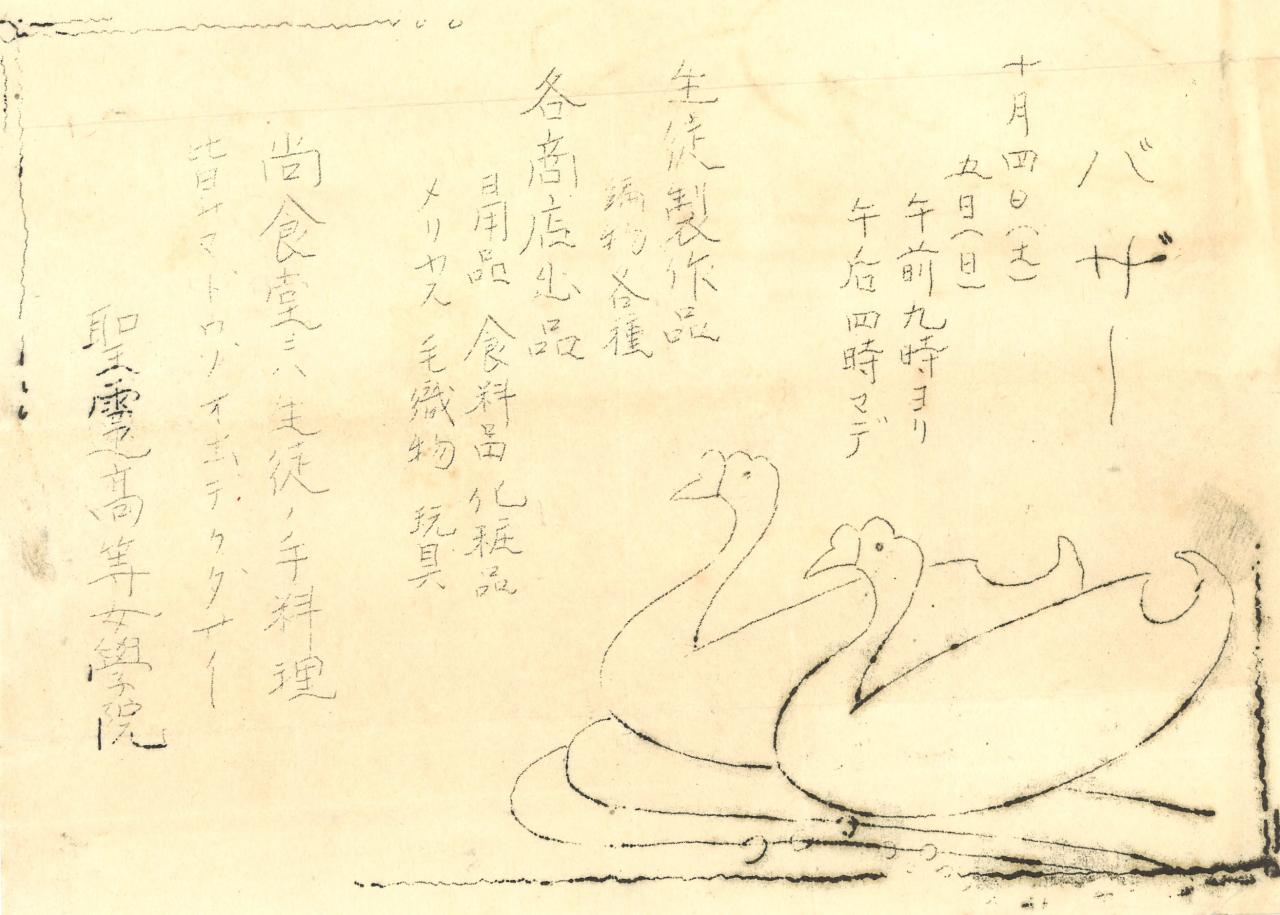 バザー
十月四日(土)
五日(日)
午前九時ヨリ
午后四時マデ
生徒製作品
編物各種
各商店出品
日用品 食料品 化粧品
メリヤス 毛織物 玩具
尚食堂ニハ生徒ノ手料理
皆サマドウゾイ王テクダサイ
聖霊高等女學院